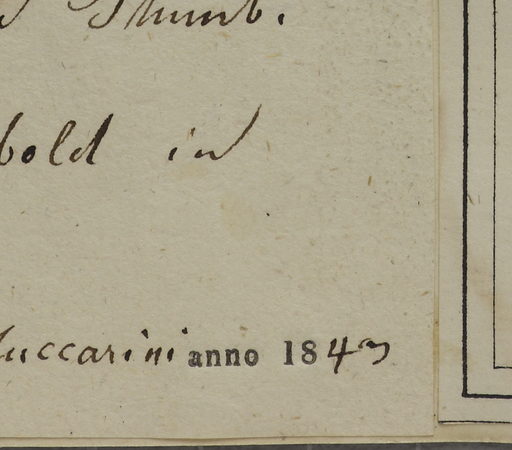 Thunb.
bold in
Zuccarini anno 1843